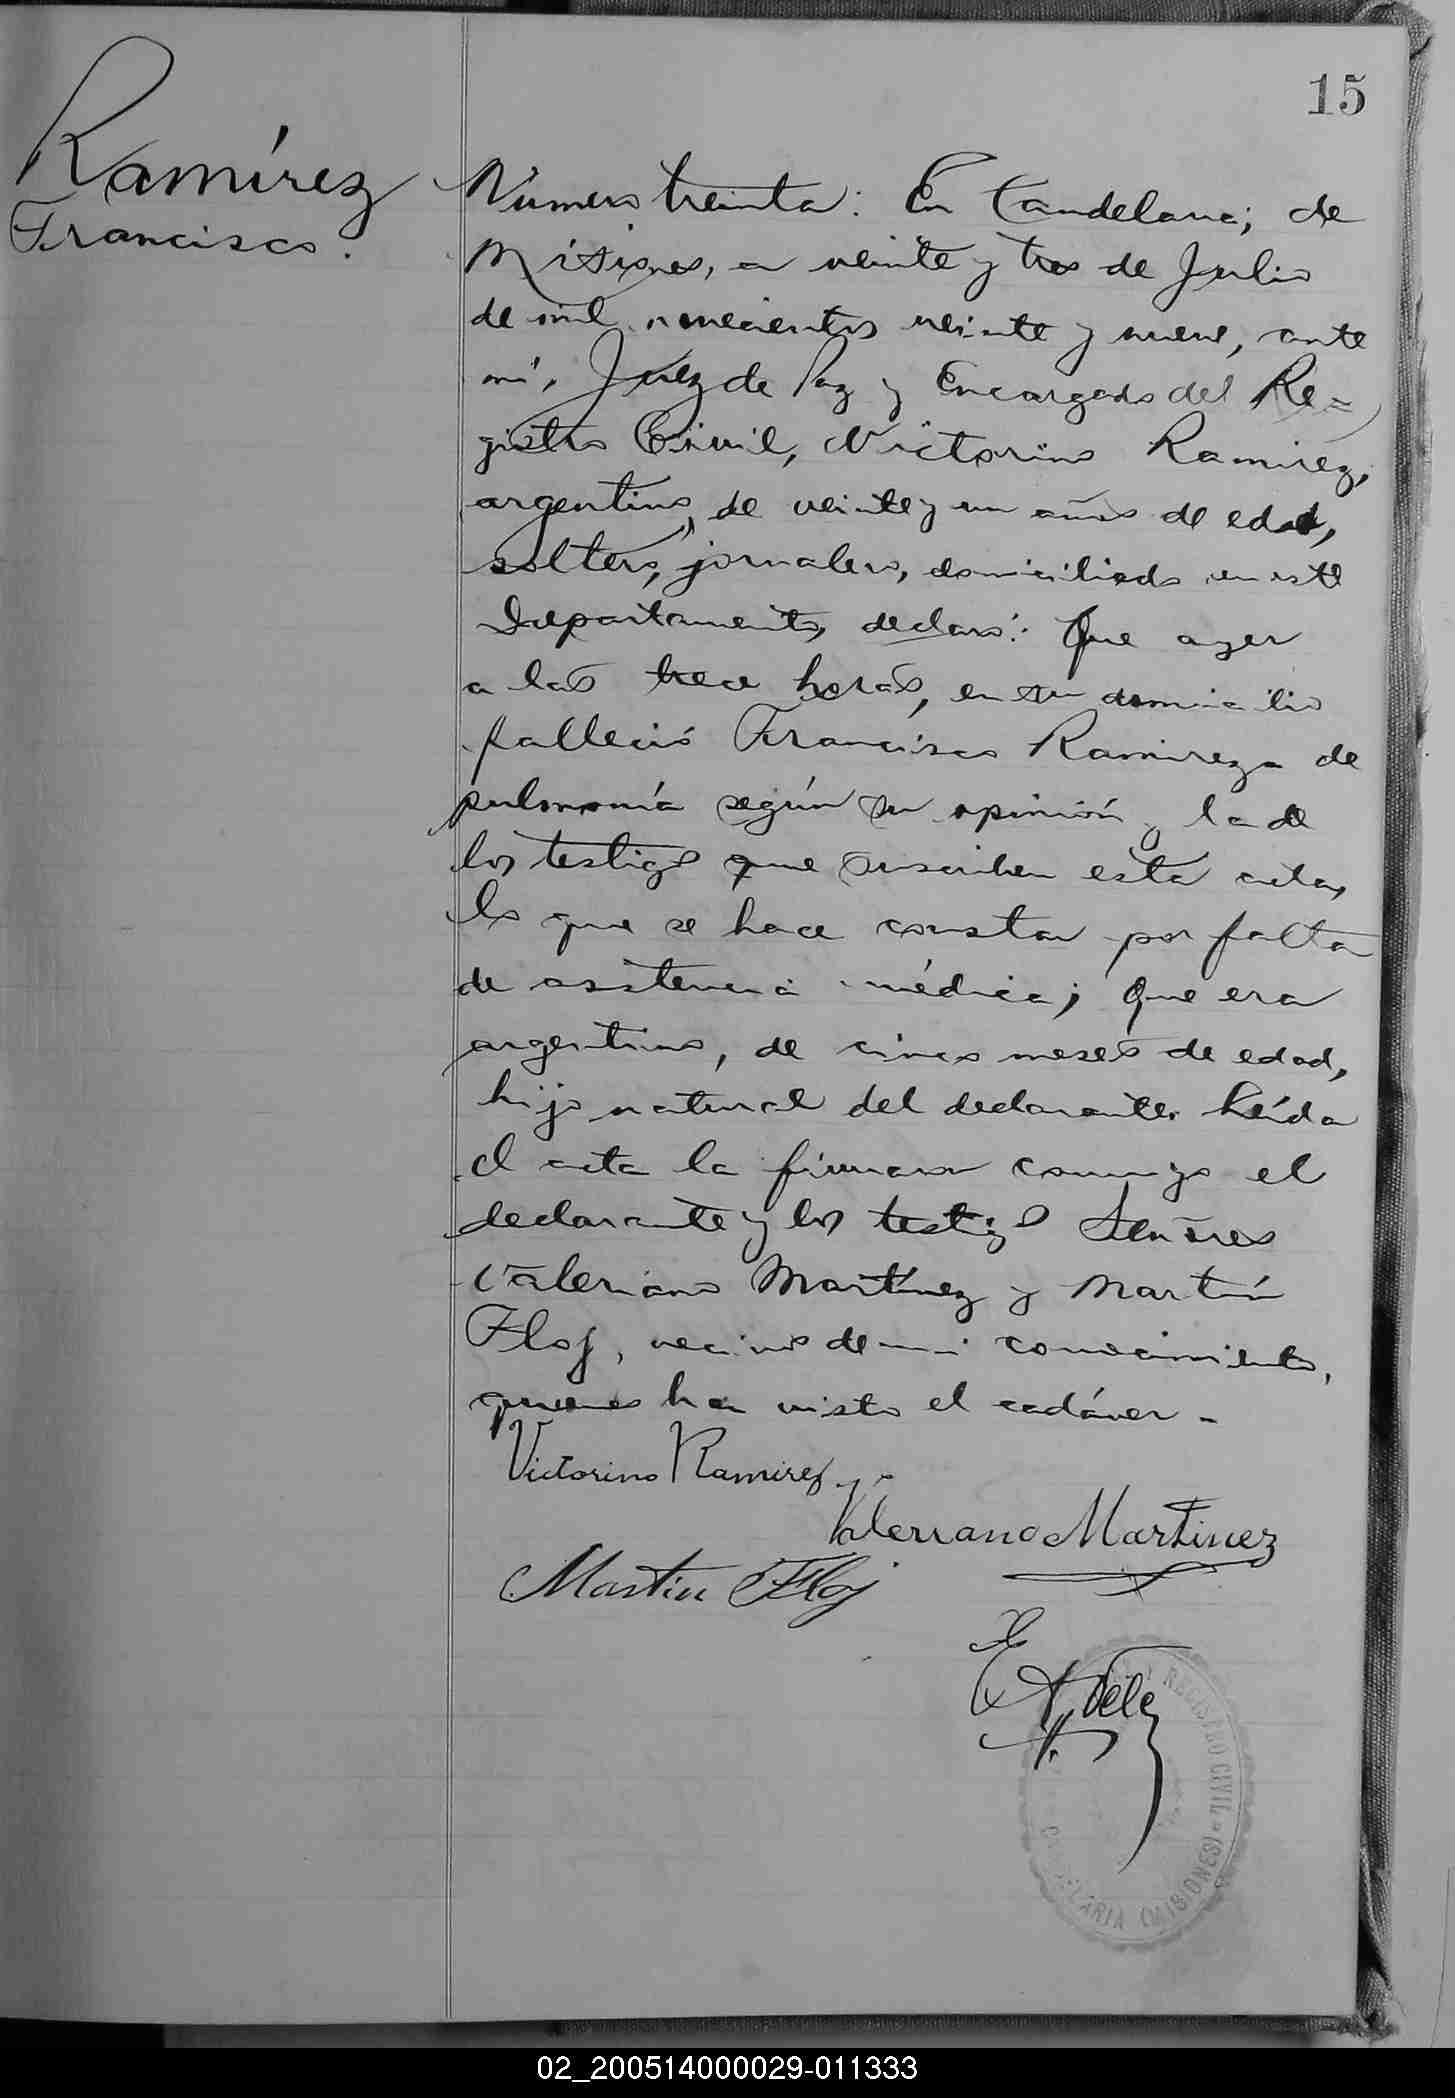 15
Ramírez
Francisco.
Número treinta: En Candelaria; de
Misiones, a veinte y tres de Julio
de mil novecientos veinte y nueve, ante
mí, Juez de Paz y Encargado del Re=
gistro Civil, Victorino Ramirez,
argentino, de veinte y un años de edad,
soltero, jornalero, domiciliado en este
Departamento, declaró: Que ayer
a las trece horas, en su domicilio
falleció Francisco Ramirez de
pulmonía según su opinión y la de
los testigos que suscriben esta acta,
lo que se hace constar por falta
de asistencia médica; Que era
argentino, de cinco meses de edad,
hijo natural del declarante. Leída
el acta la firmaron conmigo el
declarante y los testigos Señores
Valeriano Martínez y Martín
Floj, vecinos de mi conocimiento,
quienes han visto el cadáver-
Victorino Ramirez
Valeriano Martinez
Martin Floj
REGISTRO CIVIL
CANDELARIA (MISIONES)
02_200514000029-011333